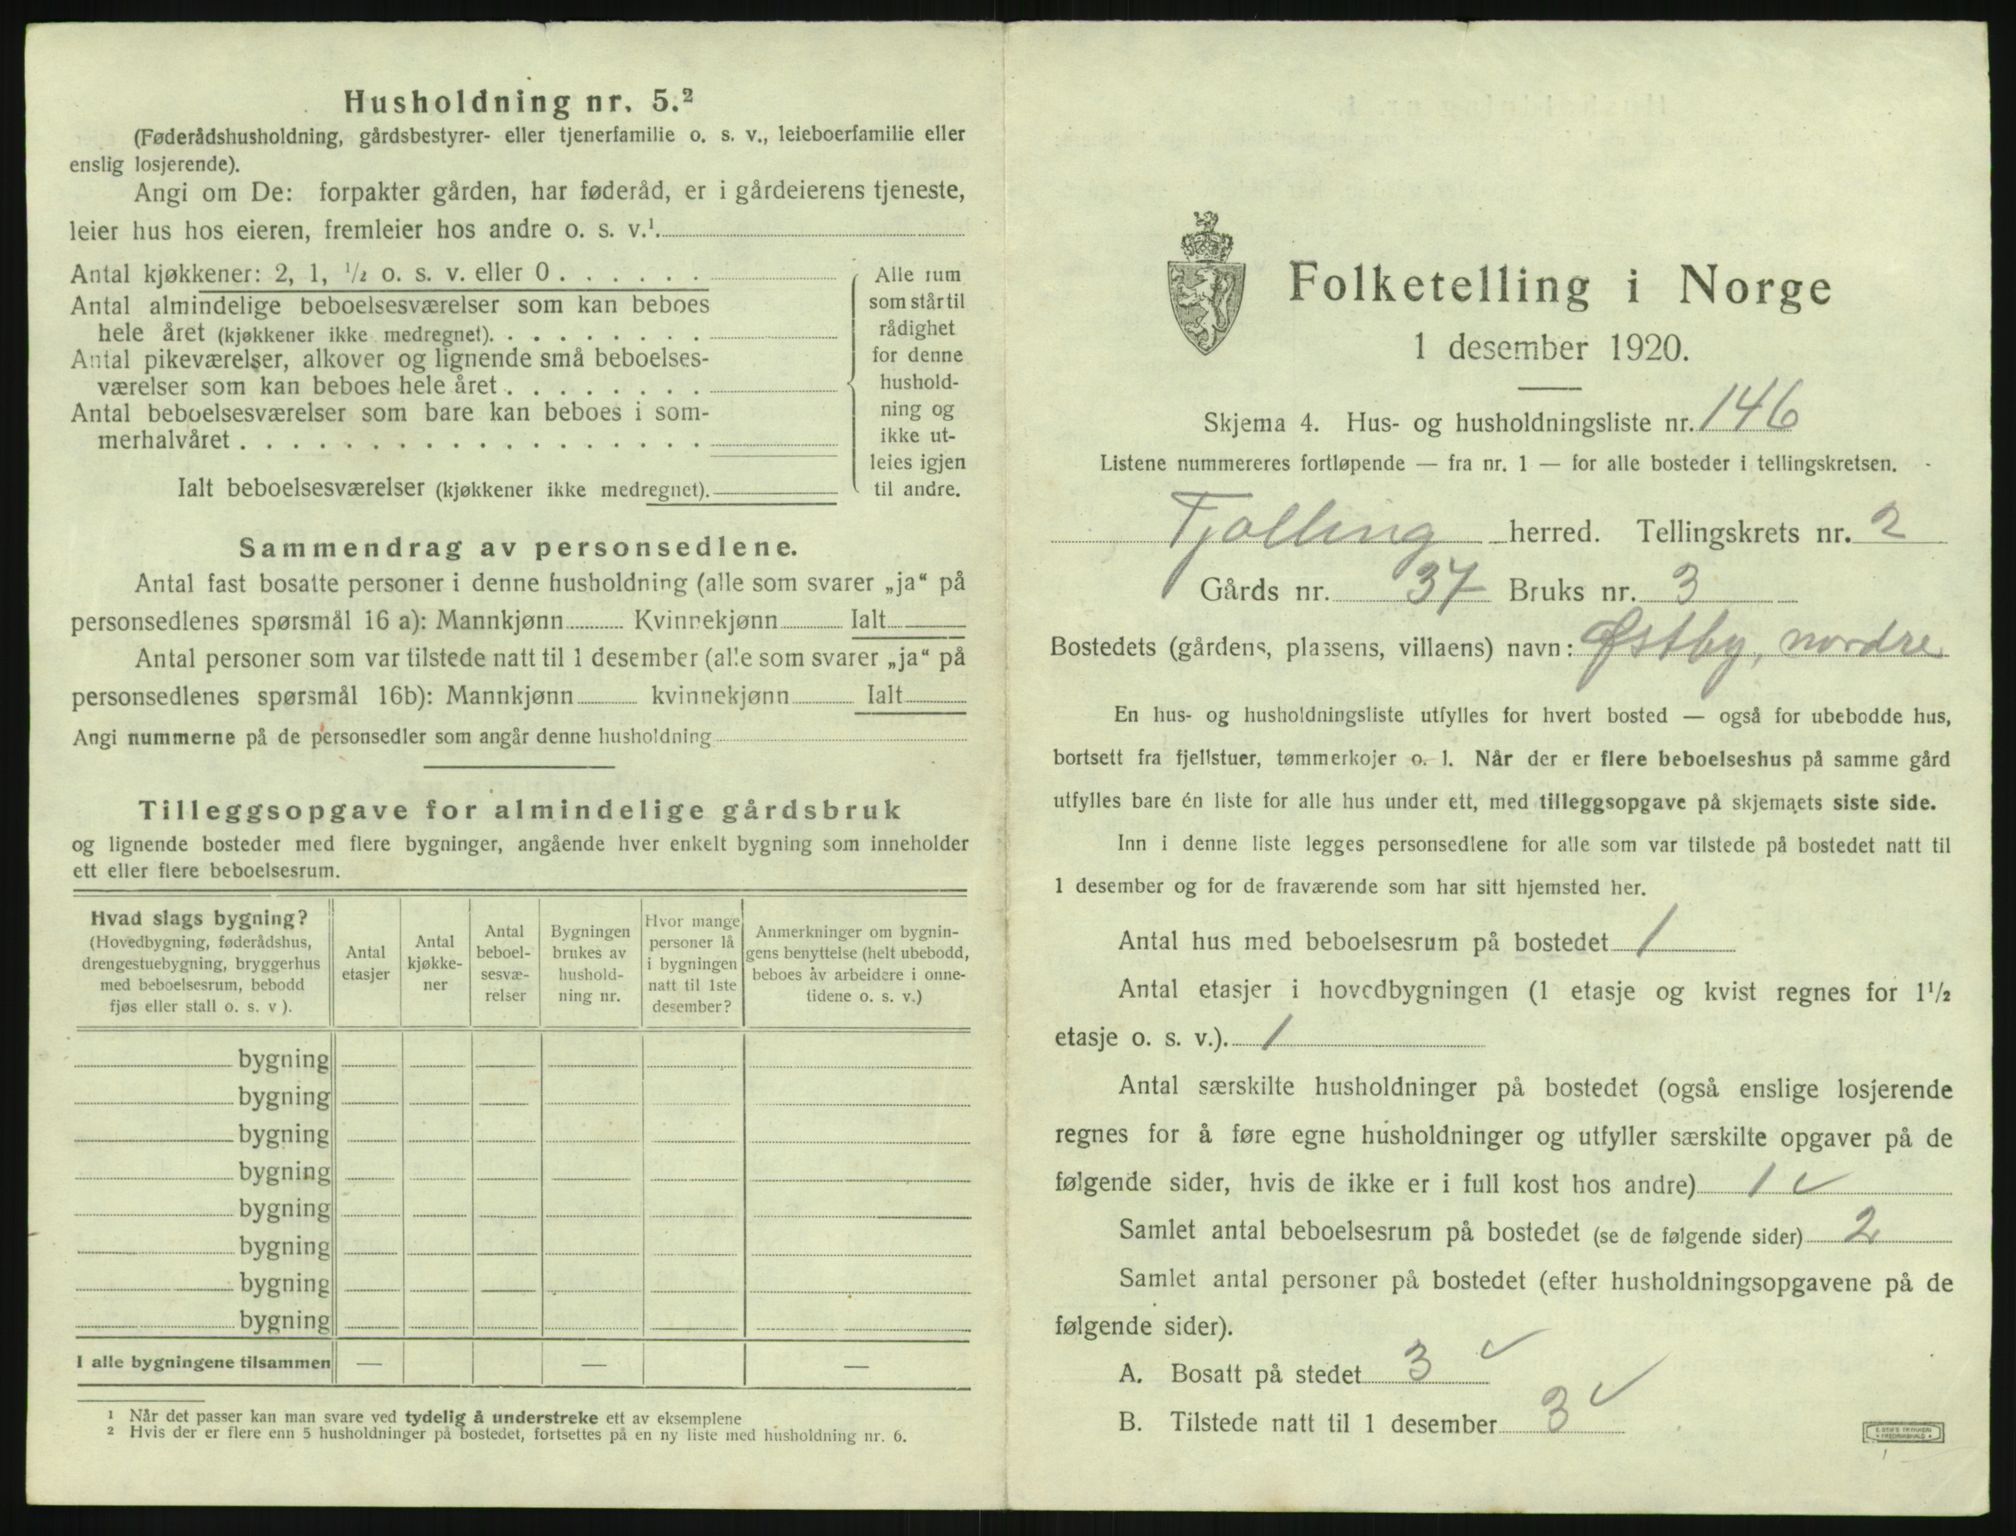 Husholdning nr. 5.²
(Føderådshusholdning, gårdsbestyrer- eller tjenerfamilie o. s. v., leieboerfamilie eller
enslig losjerende).
Angi om De: forpakter gården, har føderåd, er i gårdeierens tjeneste,
leier hus hos eieren, fremleier hos andre o. s. v.¹.
Antal kjøkkener: 2, 1, ½ o. s. v. eller 0 . . . . . .
Antal almindelige beboelsesværelser som kan beboes
hele året (kjøkkener ikke medregnet). . . . . . . . .
Antal pikeværelser, alkover og lignende små beboelses-
værelser som kan beboes hele året . . . . . . . .
Antal beboelsesværelser som bare kan beboes i som-
merhalvåret . . . . . . . . . . . . . . . . . .
Ialt beboelsesværelser (kjøkkener ikke medregnet).
Alle rum
som står til
rådighet
for denne
hushold-
ning og
ikke ut-
leies igjen
til andre.
Sammendrag av personsedlene.
Antal fast bosatte personer i denne husholdning (alle som svarer „ja“ på
personsedlenes spørsmål 16 a): Mannkjønn Kvinnekjønn Ialt
Antal personer som var tilstede natt til 1 desember (alle som svarer „ja“ på
personsedlenes spørsmål 16b): Mannkjønn kvinnekjønn Ialt
Angi nummerne på de personsedler som angår denne husholdning
Tilleggsopgave for almindelige gårdsbruk
og lignende bosteder med flere bygninger, angående hver enkelt bygning som inneholder
ett eller flere beboelsesrum.
Hvad slags bygning?
(Hovedbygning, føderådshus,
drengestuebygning, bryggerhus
med beboelsesrum, bebodd
fjøs eller stall o. s. v ).
Antal
etasjer
Antal
kjøkke-
ner
Antal
beboel-
sesvæ-
relser
Bygningen
brukes av
hushold-
ning nr.
Hvor mange
personer lå
i bygningen
natt til 1ste
desember?
Anmerkninger om bygnin-
gens benyttelse (helt ubebodd,
beboes av arbeidere i onne-
tidene o. s. v.)
bygning
bygning
bygning
bygning
bygning
bygning
bygning
bygning
I alle bygningene tilsammen — — —
¹ Når det passer kan man svare ved tydelig å understreke ett av eksemplene
² Hvis der er flere enn 5 husholdninger på bostedet, fortsettes på en ny liste med husholdning nr. 6.
Folketelling i Norge
1 desember 1920.
Skjema 4. Hus- og husholdningsliste nr. 146
Listene nummereres fortløpende — fra nr. 1 — for alle bosteder i tellingskretsen.
Tjølling herred. Tellingskrets nr. 2
Gårds nr. 37 Bruks nr. 3
Bostedets (gårdens, plassens, villaens) navn: Østby, nordre
En hus- og husholdningsliste utfylles for hvert bosted — også for ubebodde hus,
bortsett fra fjellstuer, tømmerkojer o. l. Når der er flere beboelseshus på samme gård
utfylles bare én liste for alle hus under ett, med tilleggsopgave på skjemaets siste side.
Inn i denne liste legges personsedlene for alle som var tilstede på bostedet natt til
1 desember og for de fraværende som har sitt hjemsted her.
Antal hus med beboelsesrum på bostedet 1
Antal etasjer i hovedbygningen (1 etasje og kvist regnes for 1½
etasje o. s. v.). 1
Antal særskilte husholdninger på bostedet (også enslige losjerende
regnes for å føre egne husholdninger og utfyller særskilte opgaver på de
følgende sider, hvis de ikke er i full kost hos andre) 1 ✓
Samlet antal beboelsesrum på bostedet (se de følgende sider) 2
Samlet antal personer på bostedet (efter husholdningsopgavene på de
følgende sider).
A. Bosatt på stedet 3 ✓
B. Tilstede natt til 1 desember 3 ✓